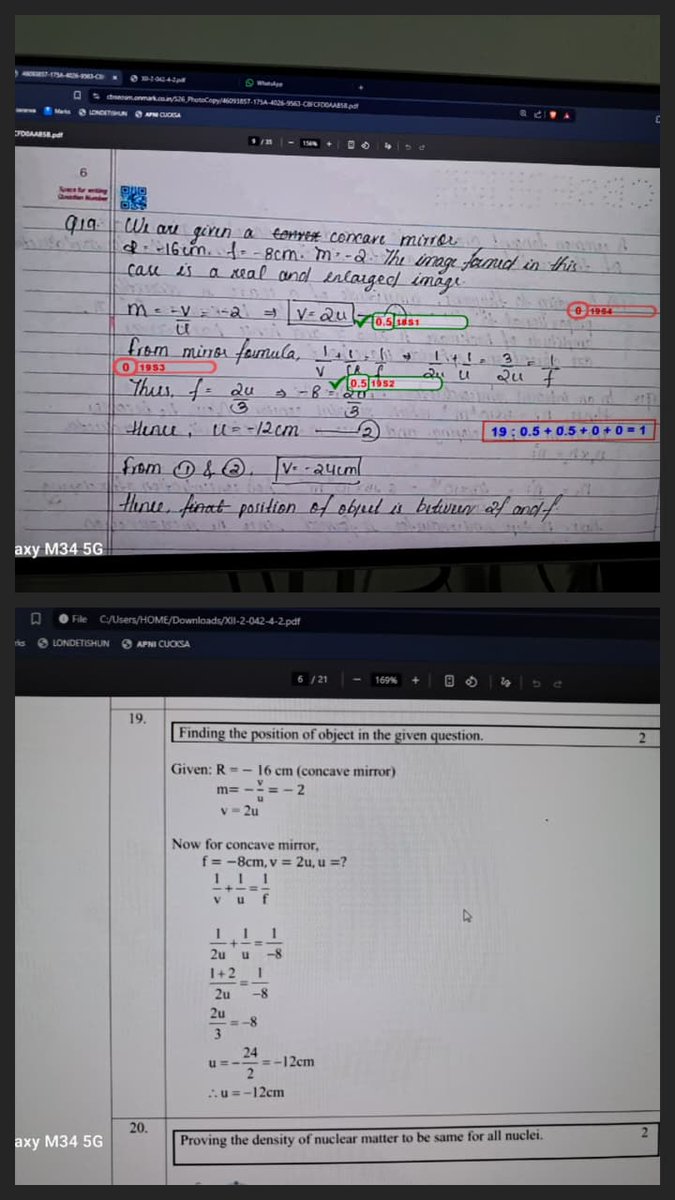 46093857-175A-4026-9563-C8F
XII-2-042-4-2.pdf
WhatsApp
cbseosm.onmark.co.in/526_PhotoCopy/46093857-175A-4026-9563-C8FCFD0AA858.pdf
Marks
LONDETISHUN
APNI CUCKSA
CFD0AA858.pdf
9 / 35
156%
6
Space for writing
Question Number
Q19. We are given a concave mirror.
R = -16cm. f = -8cm. m = -2. The image formed in this
case is a real and enlarged image.
m = -v/u = -2 ⇒ v = 2u — ①
0.5 19S1
0 19S4
from mirror formula, 1/v + 1/u = 1/f ⇒ 1/2u + 1/u = 3/2u = 1/f
0 19S3
0.5 19S2
Thus, f = 2u/3 ⇒ -8 = 2u/3
Hence, u = -12cm — ②
19 : 0.5 + 0.5 + 0 + 0 = 1
from ① & ②, v = -24cm
Hence, final position of object is between 2f and f.
axy M34 5G
File C:/Users/HOME/Downloads/XII-2-042-4-2.pdf
rks
LONDETISHUN
APNI CUCKSA
6 / 21
169%
19.
Finding the position of object in the given question.
2
Given: R = − 16 cm (concave mirror)
m= − v/u = − 2
v = 2u
Now for concave mirror,
f = −8cm, v = 2u, u =?
1/v + 1/u = 1/f
1/2u + 1/u = 1/−8
1+2/2u = 1/−8
2u/3 = −8
u = − 24/2 = −12cm
∴ u = −12cm
20.
Proving the density of nuclear matter to be same for all nuclei.
2
axy M34 5G